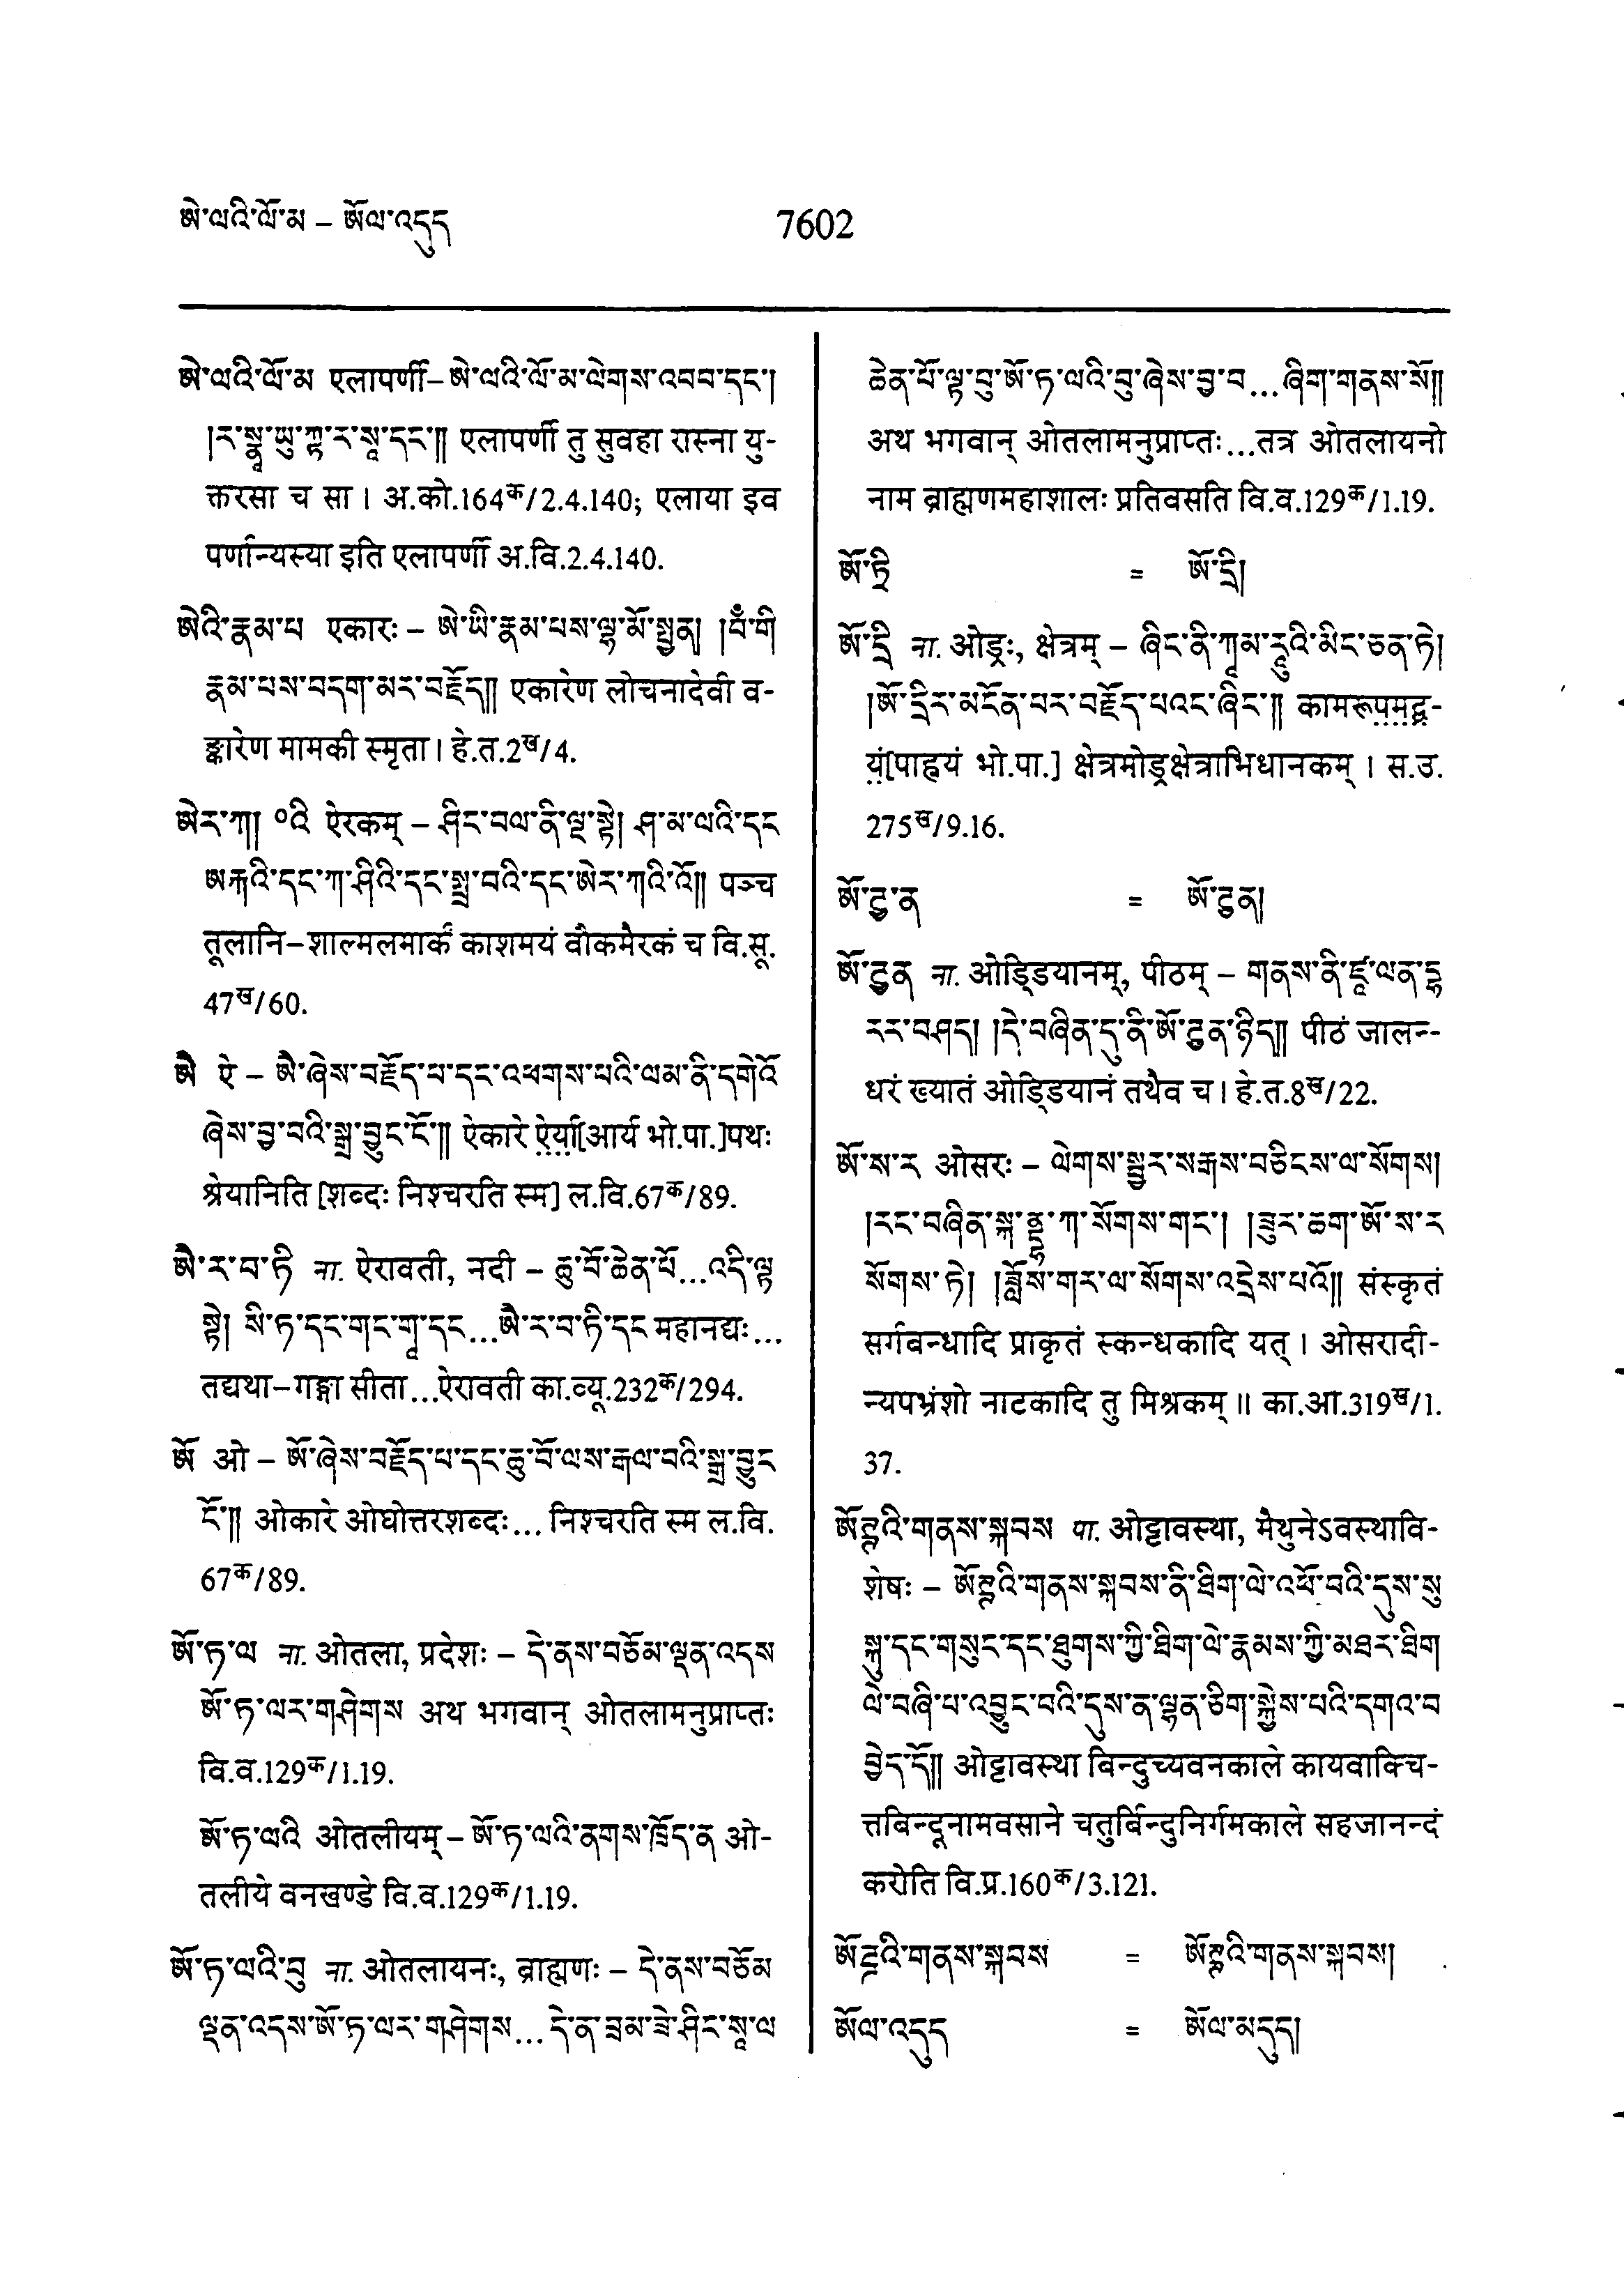 ཨེ་ལའི་ལོ་མ – ཨོལ་འདུད
7602
ཨེ་ལའི་ལོ་མ एलापर्णी– ཨེ་ལའི་ལོ་མ་ལེགས་འབབ་དང་།
།ར་སྣཱ་ཡུ་ཀྟ་ར་སཱ་དང་༎ एलापर्णी तु सुवहा रास्ना यु-
क्तरसा च सा । अ.को.164क/2.4.140; एलाया इव
पर्णान्यस्या इति एलापर्णी अ.वि.2.4.140.
ཨེའི་རྣམ་པ एकारः – ཨེ་ཡི་རྣམ་པས་ལྷ་མོ་སྤྱན། །བཾ་གི
རྣམ་པས་བདག་མར་བརྗོད༎ एकारेण लोचनादेवी व-
ङ्कारेण मामकी स्मृता । हे.त.2ख/4.
ཨེར་ཀ། ༠འི ऐरकम् – ཤིང་བལ་ནི་ལྔ་སྟེ། ཤ་མ་ལའི་དང
ཨརྐའི་དང་ཀ་ཤིའི་དང་སྤྲ་བའི་དང་ཨེར་ཀའི་འོ༎ पञ्च
तूलानि–शाल्मलमार्कं काशमयं वौकमैरकं च वि.सू.
47ख/60.
ཨཻ ऐ – ཨཻ་ཞེས་བརྗོད་པ་དང་འཕགས་པའི་ལམ་ནི་དགེའོ
ཞེས་བྱ་བའི་སྒྲ་བྱུང་ངོ་༎ ऐकारे ऐर्या[आर्य भो.पा.]पथः
श्रेयानिति [शब्दः निश्चरति स्म] ल.वि.67क/89.
ཨཻ་ར་བ་ཏི ना. ऐरावती, नदी – ཆུ་བོ་ཆེན་པོ...འདི་ལྟ
སྟེ། སི་ཏ་དང་གང་གཱ་དང...ཨཻ་ར་བ་ཏི་དང महानद्यः...
तद्यथा–गङ्गा सीता...ऐरावती का.व्यू.232क/294.
ཨོ ओ – ཨོ་ཞེས་བརྗོད་པ་དང་ཆུ་བོ་ལས་རྒལ་བའི་སྒྲ་བྱུང
ངོ་༎ ओकारे ओघोत्तरशब्दः... निश्चरति स्म ल.वि.
67क/89.
ཨོ་ཏ་ལ ना. ओतला, प्रदेशः – དེ་ནས་བཅོམ་ལྡན་འདས
ཨོ་ཏ་ལར་གཤེགས अथ भगवान् ओतलामनुप्राप्तः
वि.व.129क/1.19.
ཨོ་ཏ་ལའི ओतलीयम् – ཨོ་ཏ་ལའི་ནགས་ཁྲོད་ན ओ-
तलीये वनखण्डे वि.व.129क/1.19.
ཨོ་ཏ་ལའི་བུ ना. ओतलायनः, ब्राह्मणः – དེ་ནས་བཅོམ
ལྡན་འདས་ཨོ་ཏ་ལར་གཤེགས... དེ་ན་བྲམ་ཟེ་ཤིང་སཱ་ལ
ཆེན་པོ་ལྟ་བུ་ཨོ་ཏ་ལའི་བུ་ཞེས་བྱ་བ...ཞིག་གནས་སོ༎
अथ भगवान् ओतलामनुप्राप्तः...तत्र ओतलायनो
नाम ब्राह्मणमहाशालः प्रतिवसति वि.व.129क/1.19.
ཨོ་ཏྲི = ཨོ་དྲི།
ཨོ་དྲི ना. ओड्रः, क्षेत्रम् – ཞིང་ནི་ཀཱམ་རཱུའི་མིང་ཅན་ཏེ།
།ཨོ་དྲིར་མངོན་པར་བརྗོད་པའང་ཞིང་༎ कामरूपमद्व-
यं[पाह्वयं भो.पा.] क्षेत्रमोड्रक्षेत्राभिधानकम् । स.उ.
275ख/9.16.
ཨོ་ཌྱ་ན = ཨོ་ཌྱན།
ཨོ་ཌྱན ना. ओड्डियानम्, पीठम् – གནས་ནི་ཛཱ་ལན་དྷ
རར་བཤད། །དེ་བཞིན་དུ་ནི་ཨོ་ཌྱན་ཉིད༎ पीठं जालन्-
धरं ख्यातं ओड्डियानं तथैव च । हे.त.8ख/22.
ཨོ་ས་ར ओसरः – ལེགས་སྦྱར་སརྒས་བཅིངས་ལ་སོགས།
།རང་བཞིན་སྐ་ནྡྷ་ཀ་སོགས་གང་། །ཟུར་ཆག་ཨོ་ས་ར
སོགས་ཏེ། །ཟློས་གར་ལ་སོགས་འདྲེས་པའོ༎ संस्कृतं
सर्गबन्धादि प्राकृतं स्कन्धकादि यत् । ओसरादी-
न्यपभ्रंशो नाटकादि तु मिश्रकम् ॥ का.आ.319ख/1.
37.
ཨོཊྚའི་གནས་སྐབས पा. ओट्टावस्था, मैथुनेऽवस्थावि-
शेषः – ཨོཊྚའི་གནས་སྐབས་ནི་ཐིག་ལེ་འཕོ་བའི་དུས་སུ
སྐུ་དང་གསུང་དང་ཐུགས་ཀྱི་ཐིག་ལེ་རྣམས་ཀྱི་མཐར་ཐིག
ལེ་བཞི་པ་འབྱུང་བའི་དུས་ན་ལྷན་ཅིག་སྐྱེས་པའི་དགའ་བ
བྱེད་དོ༎ ओट्टावस्था बिन्दुच्यवनकाले कायवाक्चि-
त्तबिन्दूनामवसाने चतुर्बिन्दुनिर्गमकाले सहजानन्दं
करोति वि.प्र.160क/3.121.
ཨོཌྜའི་གནས་སྐབས = ཨོཊྚའི་གནས་སྐབས།
ཨོལ་འདུད = ཨོལ་མདུད།